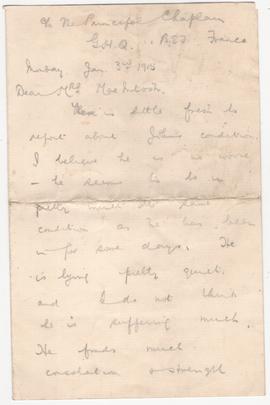 To the Principal Chaplain
G.H.Q. B.E.F. France
Monday Jan. 3rd 1915
Dear Mrs MacIntosh.
There is little fresh to
report about John's condition
I believe he is no worse
– he seems to be in
pretty much the same
condition as he has been
in for some days. He
is lying pretty quiet.
and I do not think
he is suffering much.
He finds much
consolation & strength